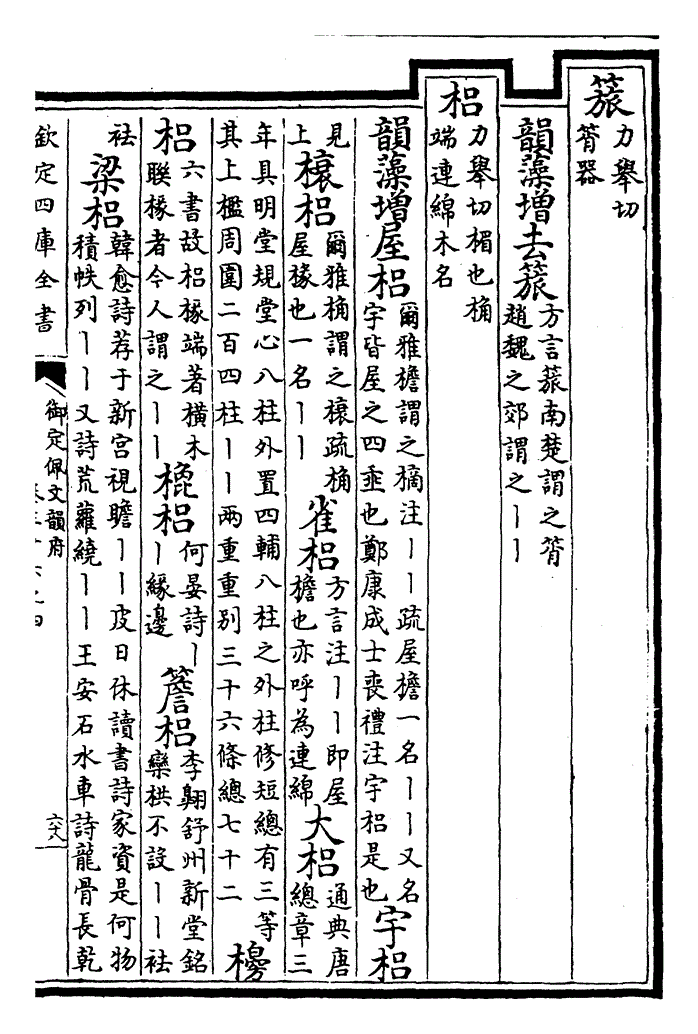 䉖力舉切
筲器
韻藻增去䉖方言䉖南楚謂之筲
趙魏之郊謂之丨丨
梠力舉切楣也桷
端連綿木名
韻藻增屋梠爾雅檐謂之樀注丨丨疏屋檐一名丨丨又名
宇皆屋之四垂也鄭康成士喪禮注宇梠是也宇梠
見
上榱梠爾雅桷謂之榱疏桷
屋椽也一名丨丨雀梠方言注丨丨即屋
檐也亦呼為連綿大梠通典唐
總章三
年具明堂規堂心八柱外置四輔八柱之外柱修短總有三等
其上檻周圍二百四柱丨丨兩重重別三十六條總七十二櫋
梠六書故梠椽端著橫木
聯椽者今人謂之丨丨梍梠何晏詩丨
丨緣邊簷梠李翺舒州新堂銘
欒栱不設丨丨祛
祛梁梠韓愈詩荐于新宫視瞻丨丨皮日休讀書詩家資是何物
積帙列丨丨又詩荒蘿繞丨丨王安石水車詩龍骨長乾
欽定四庫全書
御定佩文韻府
六十八